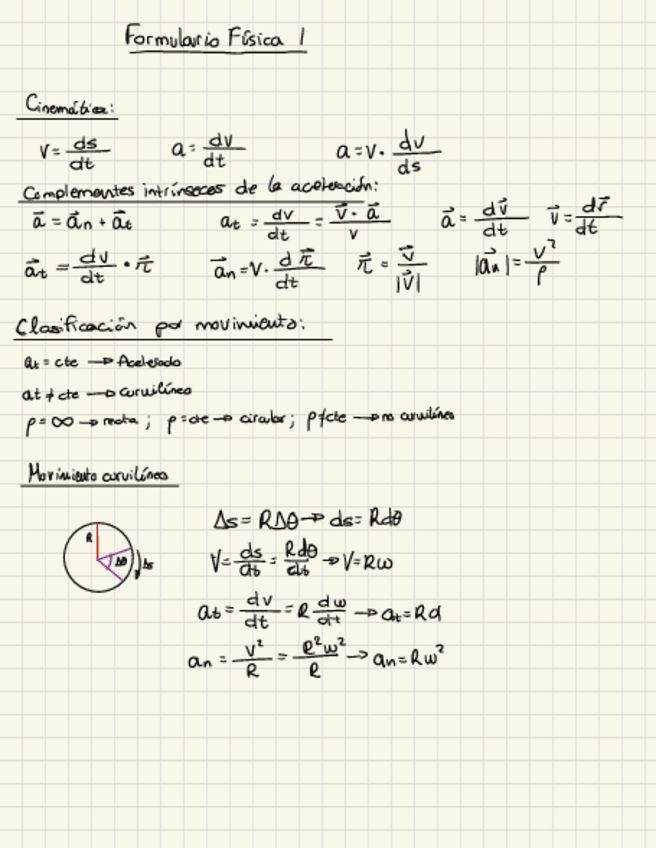 Formulario Física 1
Cinemática:
v = ds/dt a = dv/dt a = v · dv/ds
Complementes intrínseces de la aceleración:
a⃗ = a⃗n + a⃗t at = dv/dt = v⃗ · a⃗ / v a⃗ = dv⃗/dt v⃗ = dr⃗/dt
a⃗t = dv/dt · π⃗ a⃗n = v · dπ⃗/dt π⃗ = v⃗/|v⃗| |a⃗n| = v²/ρ
Clasificación por movimiento:
at = cte → Acelerado
at ≠ cte → curvilíneo
ρ = ∞ → recta ; ρ = cte → circular ; ρ ≠ cte → no curvilíneo
Movimiento curvilíneo
R Δθ Δs
Δs = RΔθ → ds = Rdθ
V = ds/dt = Rdθ/dt → V = Rω
at = dv/dt = R dω/dt → at = Rα
an = v²/R = R²ω²/R → an = Rω²